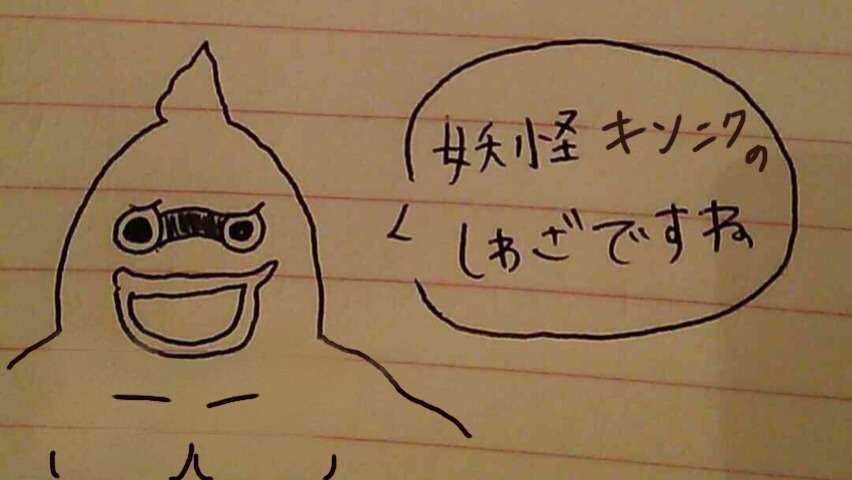 妖怪キソニクの
しわざですね